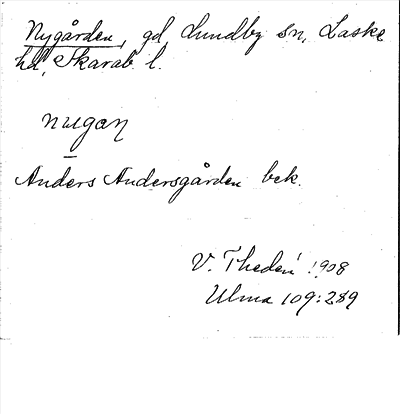 Nygården, gd, Lundby sn, Laske
hd, Skarab. l.
nugaɳ
Anders Andersgården bek.
V. Thedeń 1908
Ulma 109:289